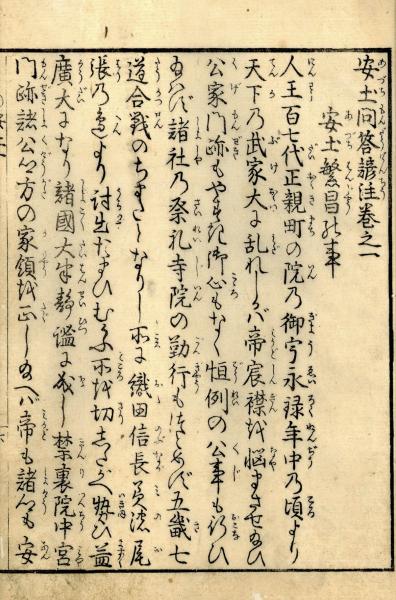 安土問答諺注巻之一
安土繁昌の事
人王百七代正親町の院の御宇永禄年中の頃より
天下の武家大に乱れしかバ帝宸襟を悩させ給ひ
公家門跡もやすき御心もなく恒例の公事も行ひ
給はず諸社の祭礼寺院の勤行もはじめず五畿七
道合戦のちまたとなりし所に織田信長美濃尾
張の辺より討出たまひむかふ所を切したがへ勢ひ益
廣大になり諸國大半静謐に成し禁裏院中宮
門跡諸公方の家領を正し給へバ帝も諸公も安